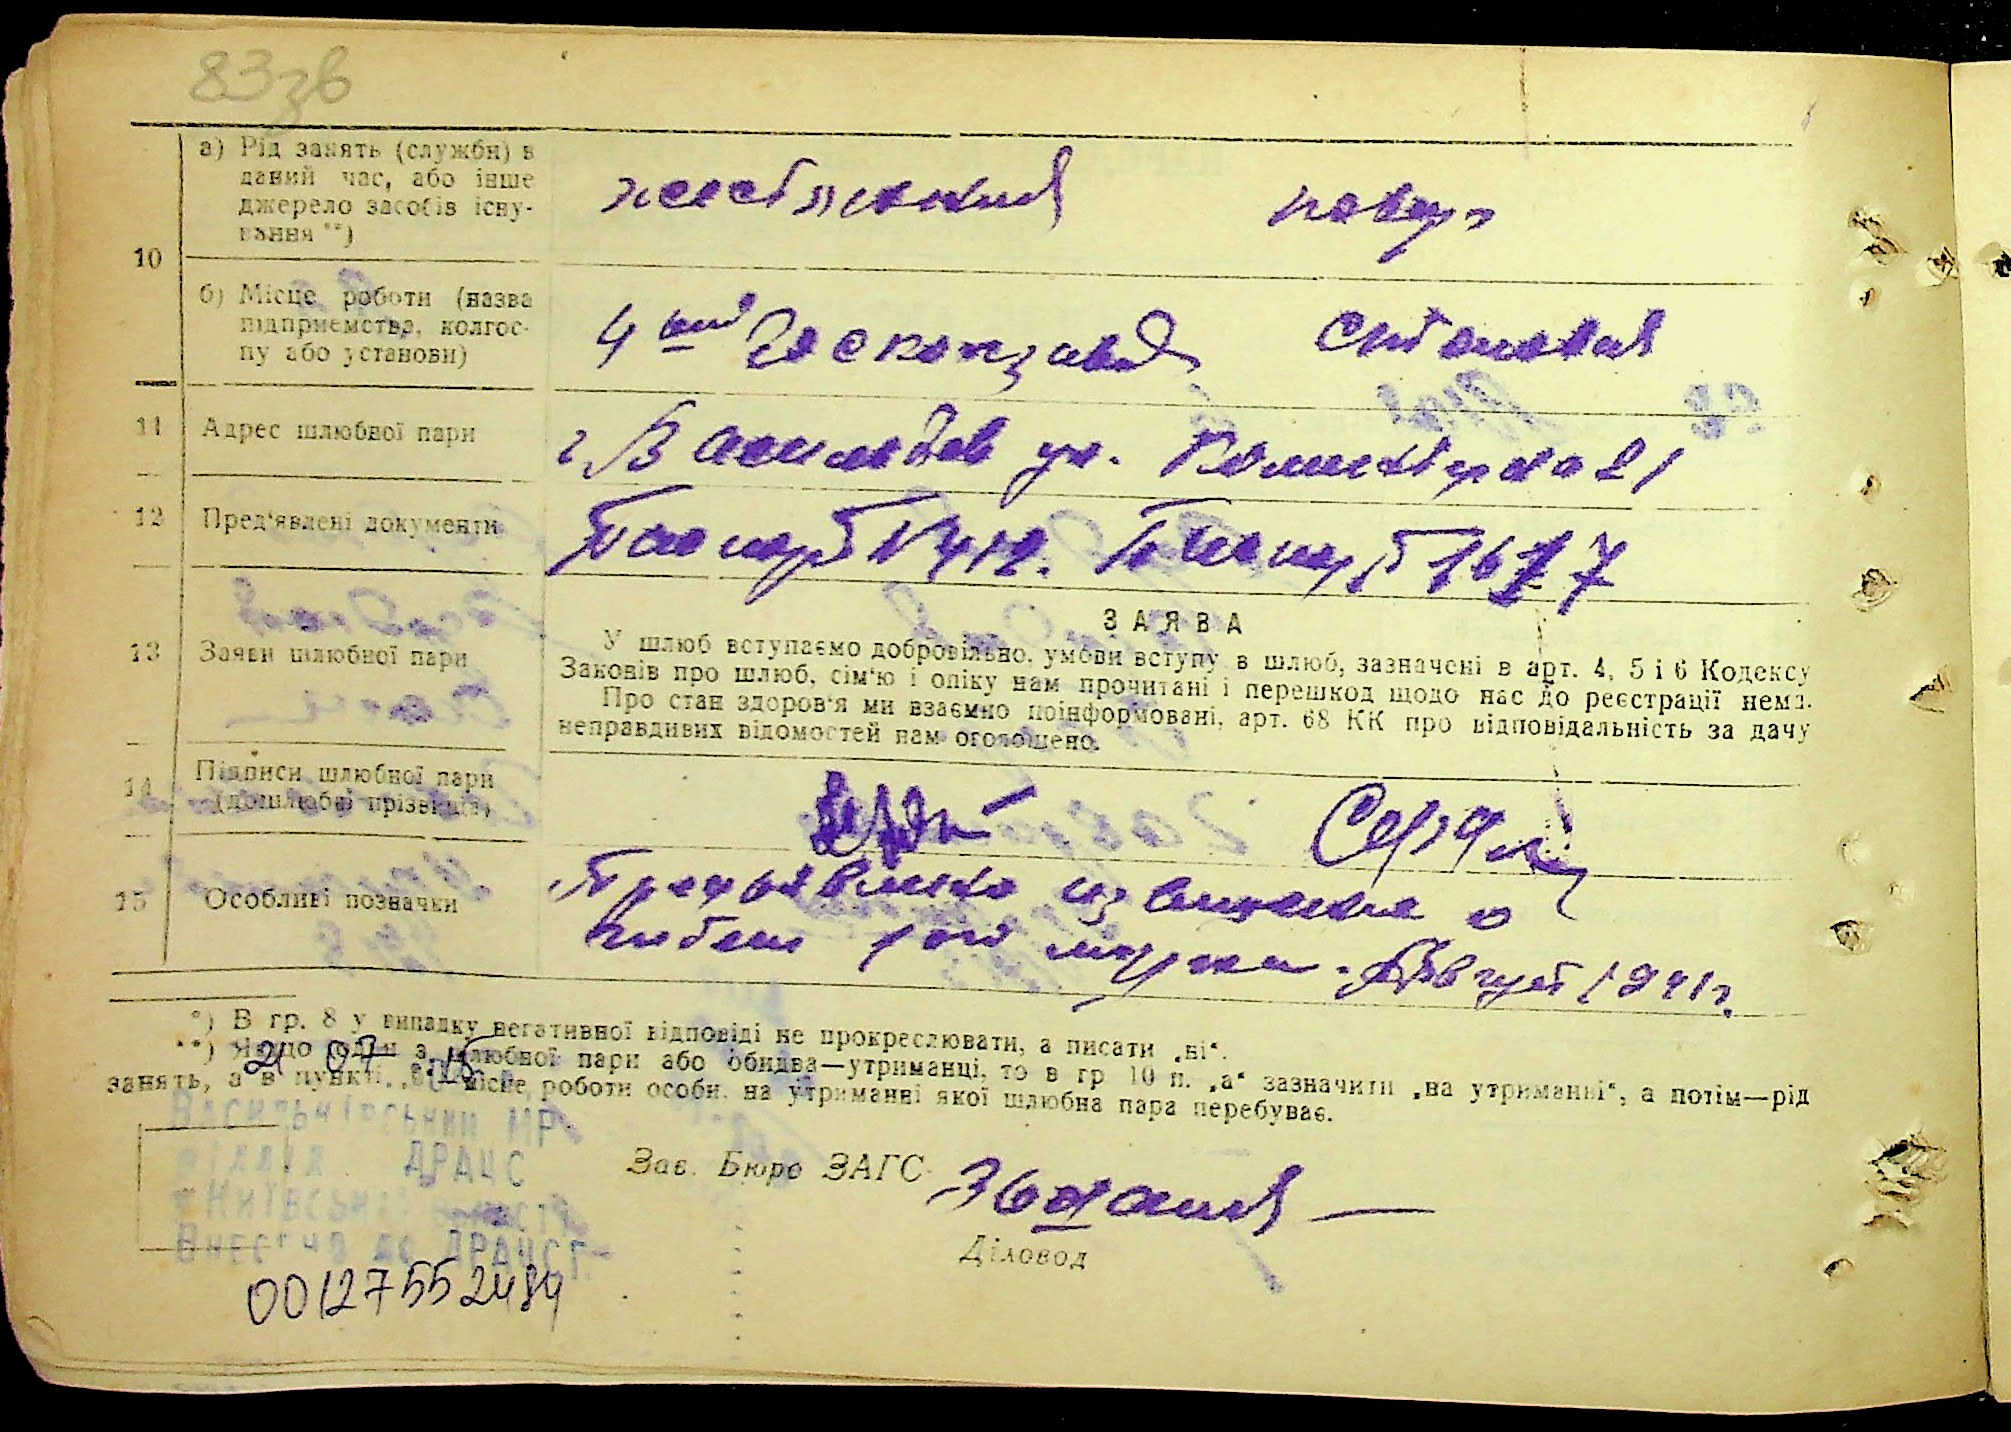 83зв
а) Рід занять (служби) в
даний час, або інше
джерело засобів існу-
вання **)
повар
10
б) Місце роботи (назва
підприємства, колгос-
пу або установи)
4
столовая
11 Адрес шлюбної пари
г. Васильков ул.
12 Пред'явлені документи
Паспорт Паспорт
ЗАЯВА
13 Заяви шлюбної пари
У шлюб вступаємо добровільно, умови вступу в шлюб, зазначені в арт. 4, 5 і 6 Кодексу
Законів про шлюб, сім'ю і опіку нам прочитані і перешкод щодо нас до реєстрації нема.
Про стан здоров'я ми взаємно поінформовані, арт. 68 КК про відповідальність за дачу
неправдивих відомостей нам оголошено.
14 Підписи шлюбної пари
(дошлюбні прізвища)
15 Особливі позначки
Предъявлено извещение о
гибели мужа. Август 1941г.
*) В гр. 8 у випадку негативної відповіді не прокреслювати, а писати „ні“.
**) Якщо один з шлюбної пари або обидва—утриманці, то в гр. 10 п. „а“ зазначити „на утриманні“, а потім—рід
занять, а в пункті „б“ місце роботи особи, на утриманні якої шлюбна пара перебуває.
21 07 15
Васильківський МР
відділ ДРАЦС
Київській області
Внесено до ДРАЦСГ-
Зав. Бюро ЗАГС
Діловод
00127552484